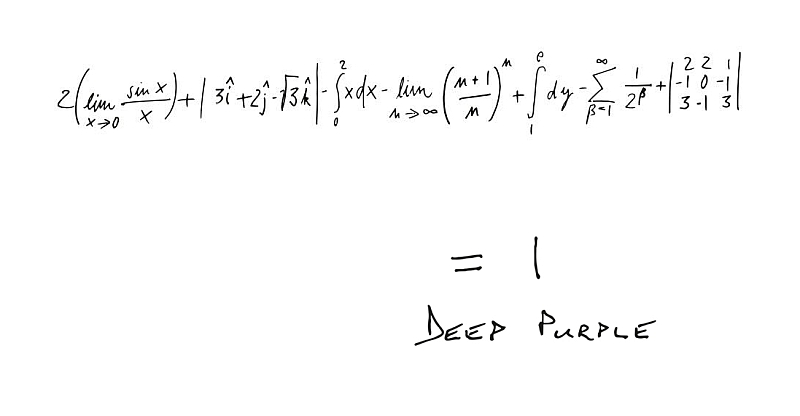 2(lim x→0 sin x/x) + |3î + 2ĵ - √3k̂| - ∫₀² x dx - lim n→∞ ((n+1)/n)ⁿ + ∫₁ᵉ dy - ∑_{β=1}^∞ 1/2^β + |2 2 1; -1 0 -1; 3 -1 3|
= 1
DEEP PURPLE